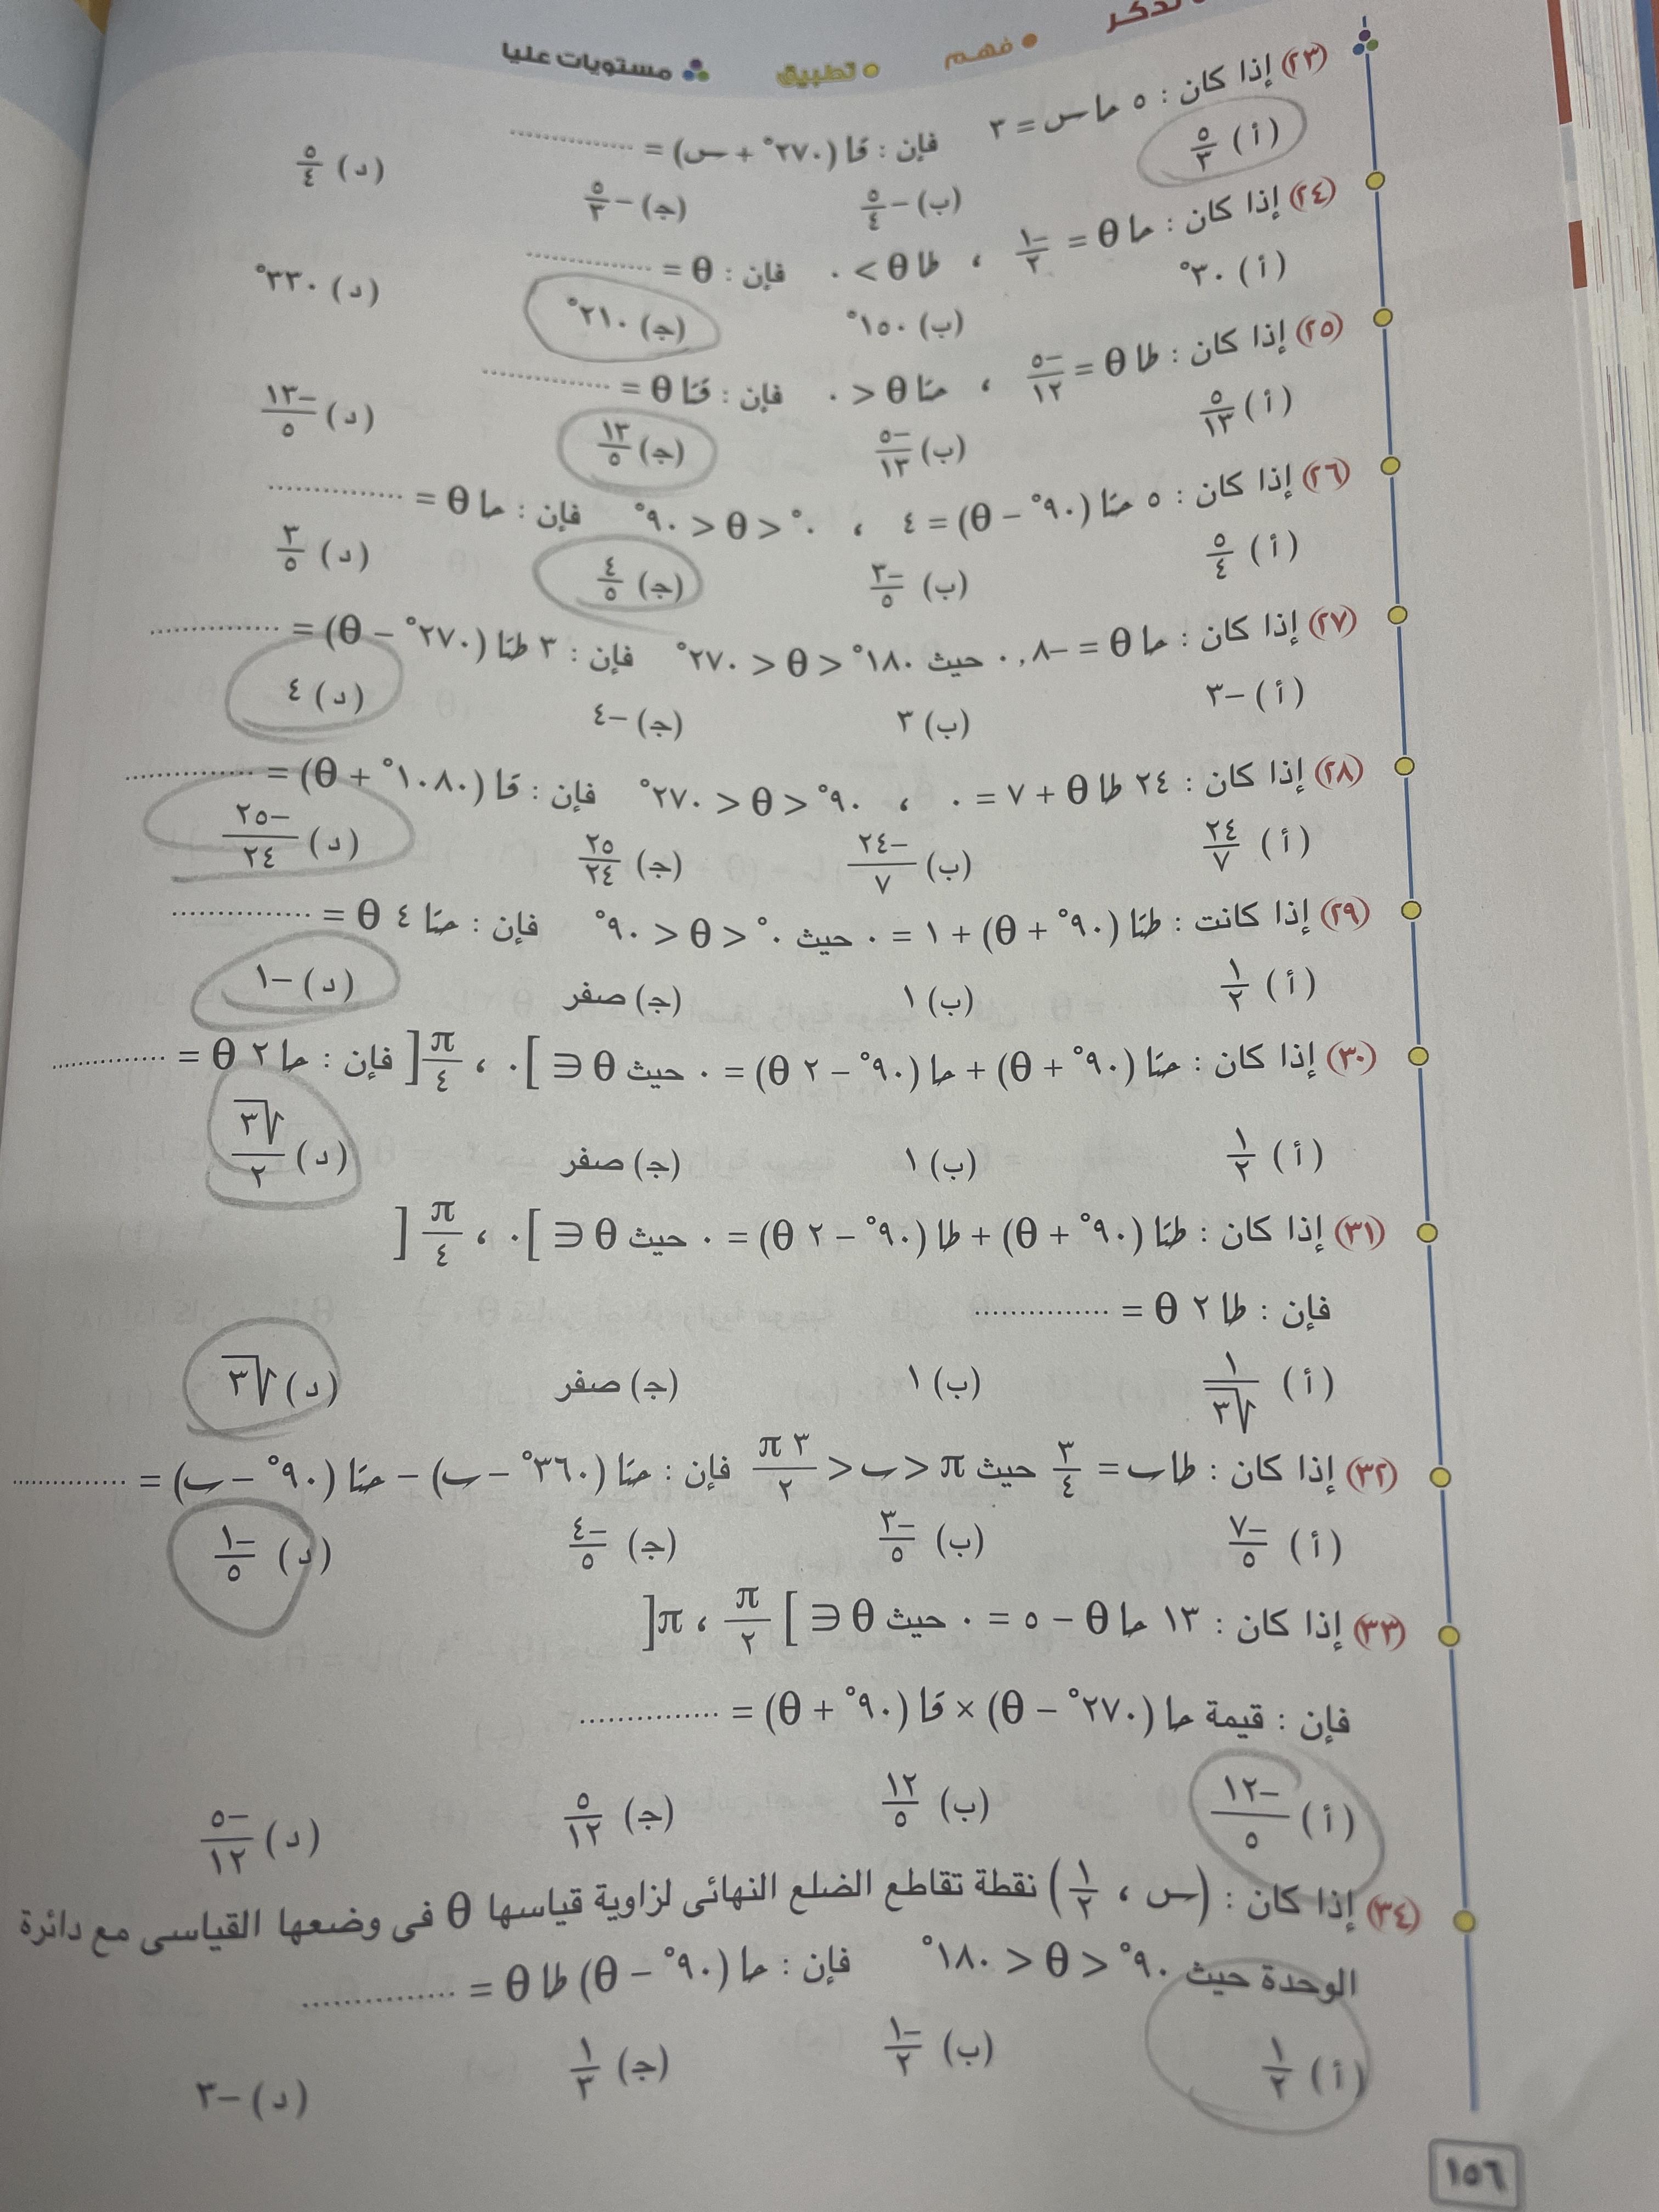 تذكر • فهم • تطبيق مستويات عليا
(٢٣) إذا كان : ٥ ما س = ٣ فإن : قا (٢٧٠° + س) = ...............
(أ) ٥/٣ (ب) −٥/٤ (ج) −٥/٣ (د) ٥/٤
(٢٤) إذا كان : ما θ = −١/٢ ، طا θ > ٠ فإن : θ = ...............
(أ) ٣٠° (ب) ١٥٠° (ج) ٢١٠° (د) ٣٣٠°
(٢٥) إذا كان : طا θ = −٥/١٢ ، متا θ < ٠ فإن : قتا θ = ...............
(أ) ٥/١٣ (ب) −٥/١٣ (ج) ١٣/٥ (د) −١٣/٥
(٢٦) إذا كان : ٥ متا (٩٠° − θ) = ٤ ، ٠° < θ < ٩٠° فإن : ما θ = ...............
(أ) ٥/٤ (ب) −٣/٥ (ج) ٤/٥ (د) ٣/٥
(٢٧) إذا كان : ما θ = −٠,٨ حيث ١٨٠° < θ < ٢٧٠° فإن : ٣ طتا (٢٧٠° − θ) = ...............
(أ) −٣ (ب) ٣ (ج) −٤ (د) ٤
(٢٨) إذا كان : ٢٤ طا θ + ٧ = ٠ ، ٩٠° < θ < ٢٧٠° فإن : قا (١٠٨٠° + θ) = ...............
(أ) ٢٤/٧ (ب) −٢٤/٧ (ج) ٢٥/٢٤ (د) −٢٥/٢٤
(٢٩) إذا كانت : طتا (٩٠° + θ) + ١ = ٠ حيث ٠° < θ < ٩٠° فإن : متا ٤ θ = ...............
(أ) ١/٢ (ب) ١ (ج) صفر (د) −١
(٣٠) إذا كان : متا (٩٠° + θ) + ما (٩٠° − ٢ θ) = ٠ حيث θ ∈ ]٠ ، π/٤[ فإن : ما ٢ θ = ...............
(أ) ١/٢ (ب) ١ (ج) صفر (د) √٣/٢
(٣١) إذا كان : طتا (٩٠° + θ) + طا (٩٠° − ٢ θ) = ٠ حيث θ ∈ ]٠ ، π/٤[
فإن : طا ٢ θ = ...............
(أ) ١/√٣ (ب) ١ (ج) صفر (د) √٣
(٣٢) إذا كان : طا ب = ٣/٤ حيث π < ب < ٣ π/٢ فإن : متا (٣٦٠° − ب) − متا (٩٠° − ب) = ...............
(أ) −٧/٥ (ب) −٣/٥ (ج) −٤/٥ (د) −١/٥
(٣٣) إذا كان : ١٣ ما θ − ٥ = ٠ حيث θ ∈ ]π/٢ ، π[
فإن : قيمة ما (٢٧٠° − θ) × قا (٩٠° + θ) = ...............
(أ) −١٢/٥ (ب) ١٢/٥ (ج) ٥/١٢ (د) −٥/١٢
(٣٤) إذا كان : (س ، ١/٢) نقطة تقاطع الضلع النهائى لزاوية قياسها θ فى وضعها القياسى مع دائرة
الوحدة حيث ٩٠° < θ < ١٨٠° فإن : ما (٩٠° − θ) طا θ = ...............
(أ) ١/٢ (ب) −١/٢ (ج) ١/٣ (د) −٣
١٥٦